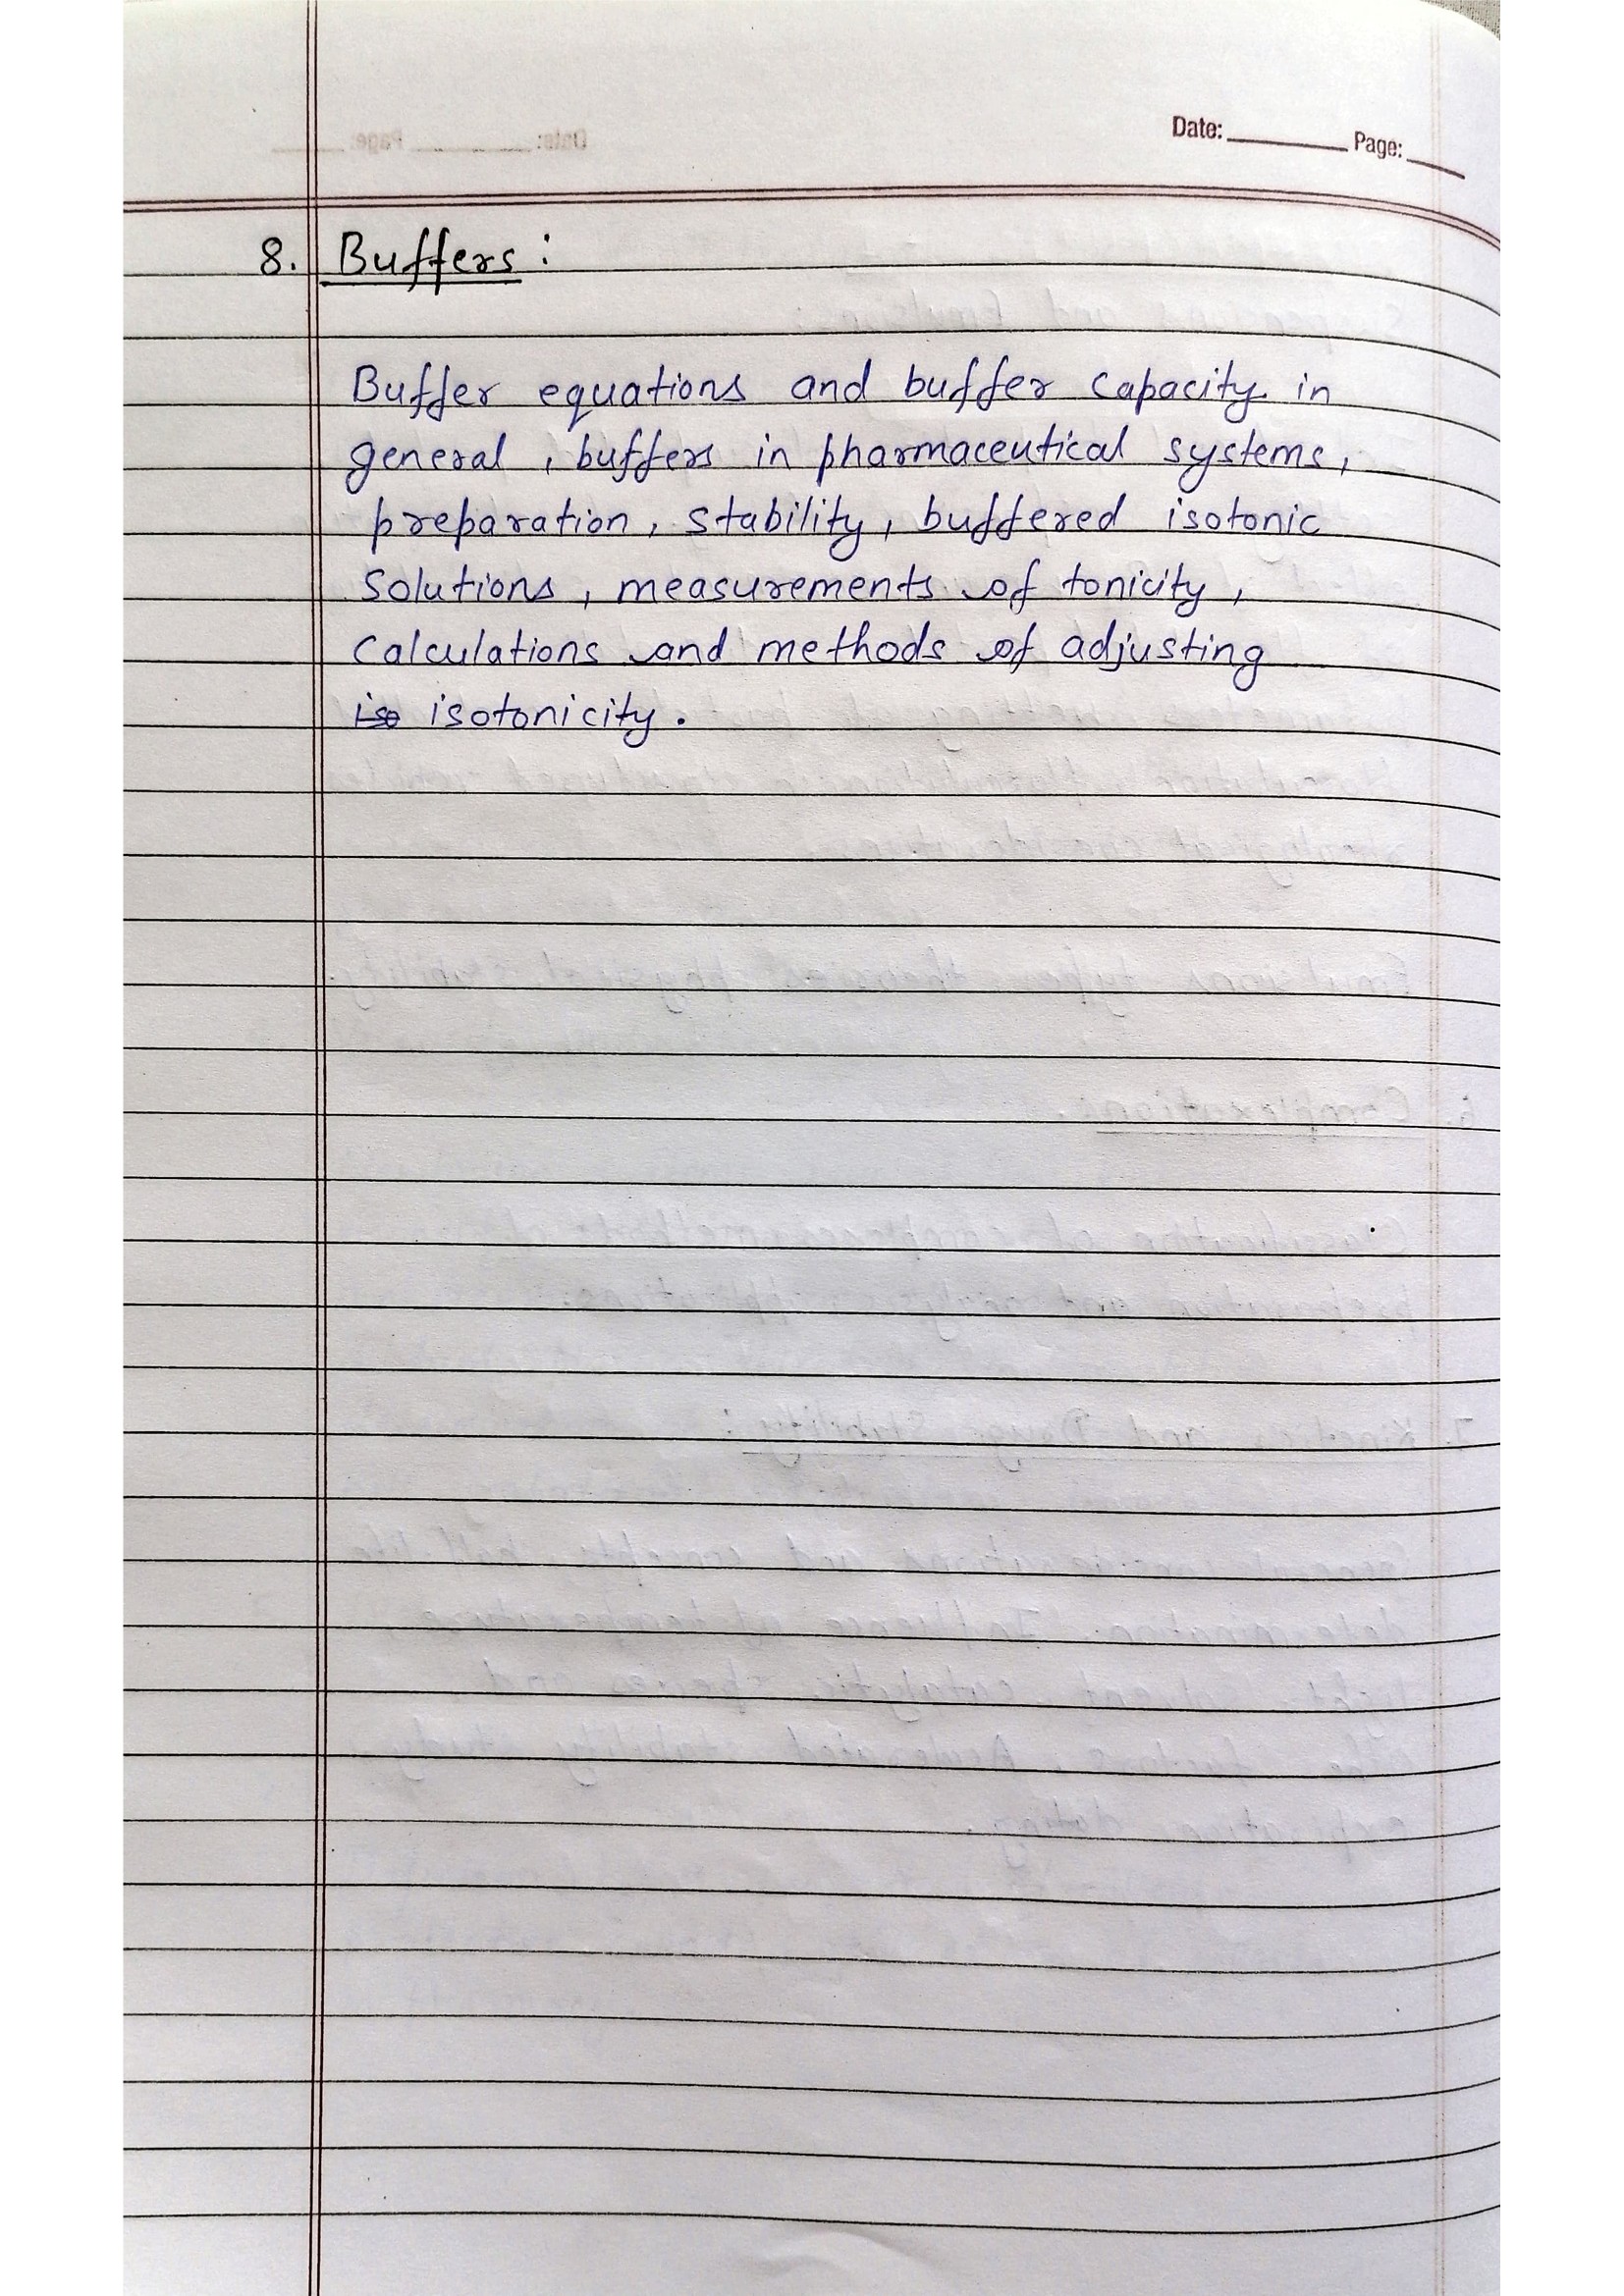 Date: Page:
8. Buffers :
Buffer equations and buffer capacity in
general , buffers in pharmaceutical systems,
preparation, stability, buffered isotonic
solutions , measurements of tonicity ,
calculations and methods of adjusting
iso isotonicity.